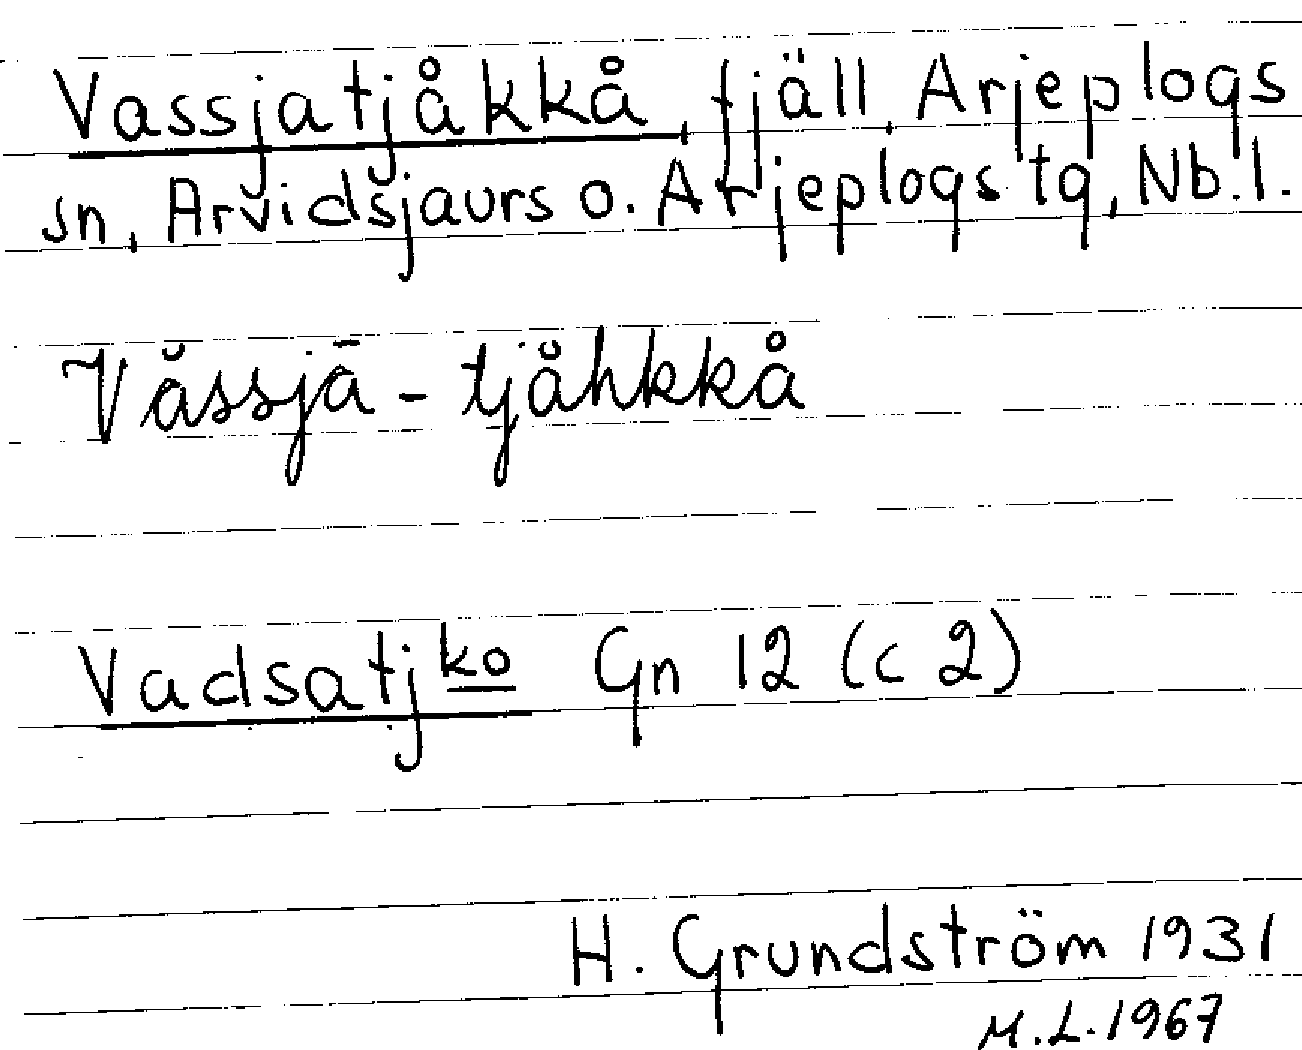 Vassjatjåkkå, fjäll, Arjeplogs
sn, Arvidsjaurs o. Arjeplogs tg, Nb. l.
Văssjā - tjåhkkå
Vadsatjko Gn 12 (c 2)
H. Grundström 1931
M.L. 1967